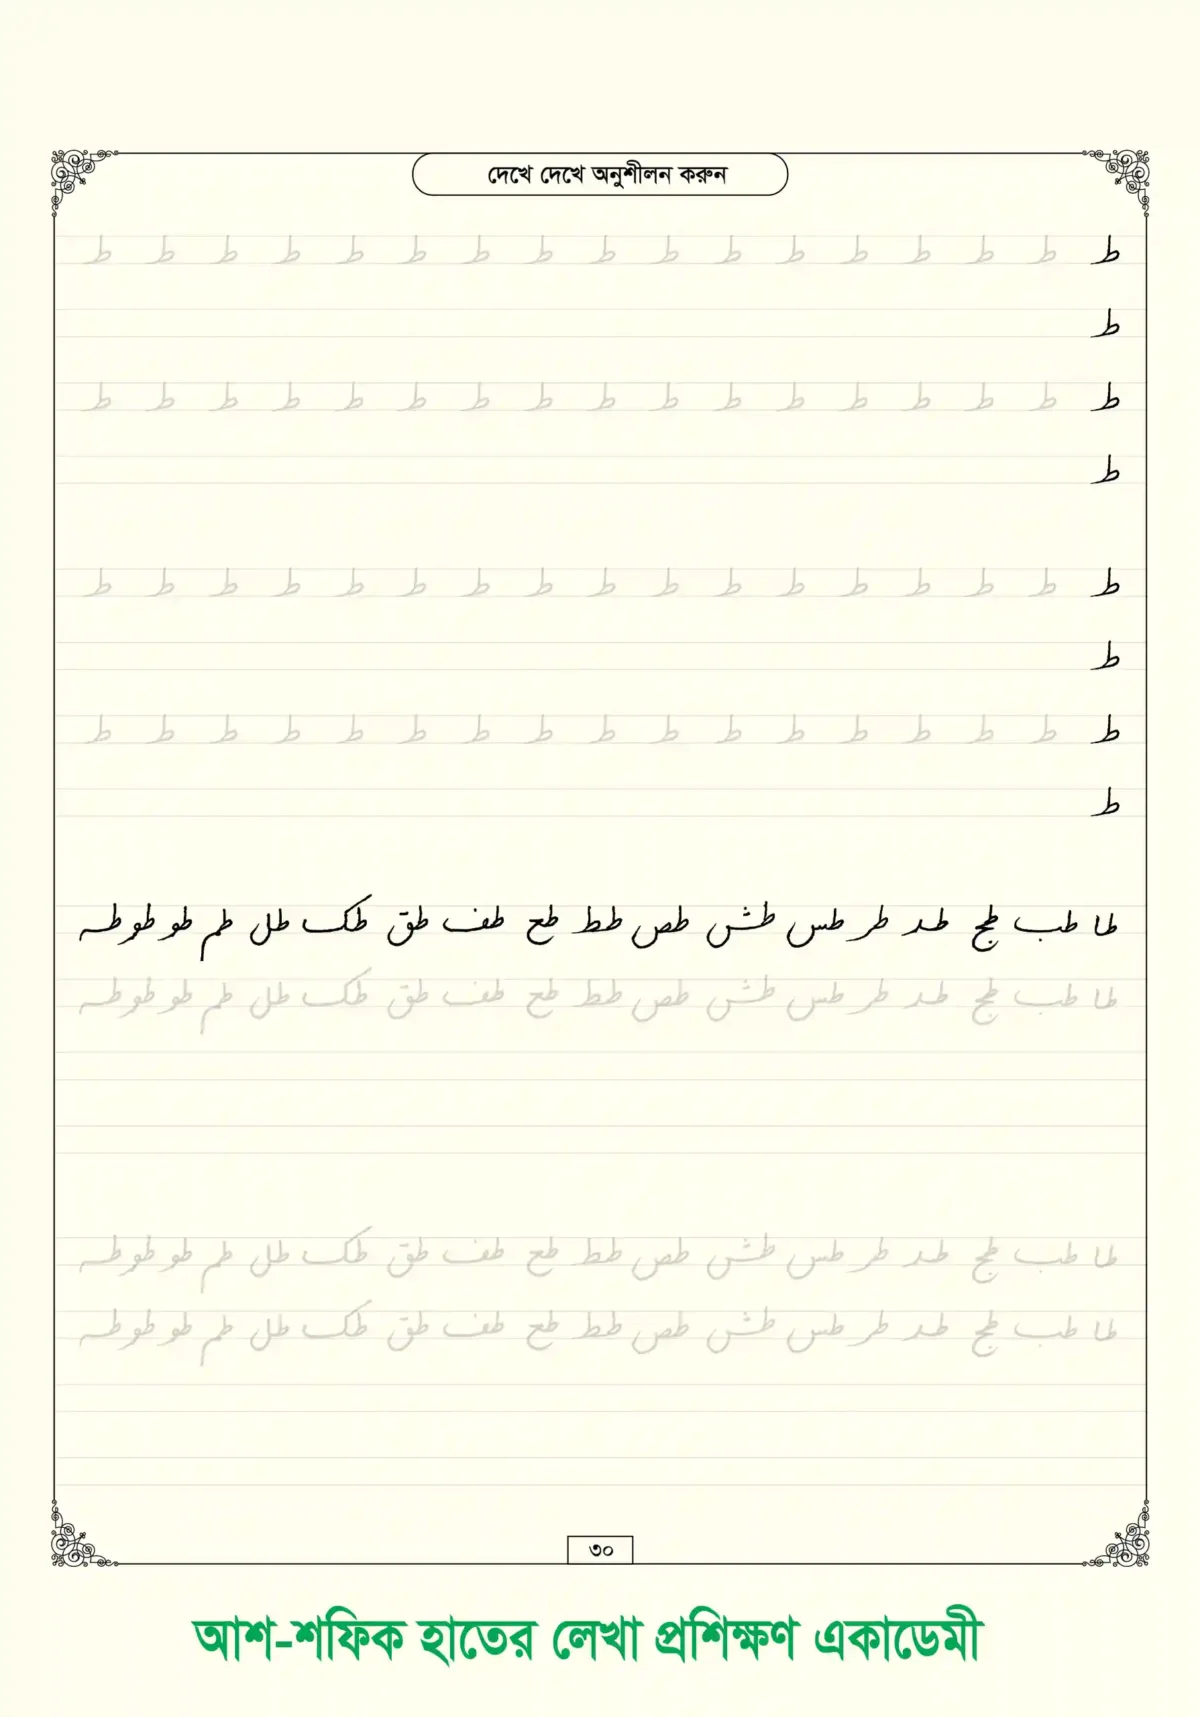 দেখে দেখে অনুশীলন করুন
ط ط ط ط ط ط ط ط ط ط ط ط ط ط ط ط ط
ط
ط ط ط ط ط ط ط ط ط ط ط ط ط ط ط ط ط
ط
ط ط ط ط ط ط ط ط ط ط ط ط ط ط ط ط ط
ط
ط ط ط ط ط ط ط ط ط ط ط ط ط ط ط ط ط
ط
طا طب طج طد طر طس طش طص طط طع طف طق طک طل طم طو طو طہ
طا طب طج طد طر طس طش طص طط طع طف طق طک طل طم طو طو طہ
طا طب طج طد طر طس طش طص طط طع طف طق طک طل طم طو طو طہ
طا طب طج طد طر طس طش طص طط طع طف طق طک طل طم طو طو طہ
৩০
আশ-শফিক হাতের লেখা প্রশিক্ষণ একাডেমী